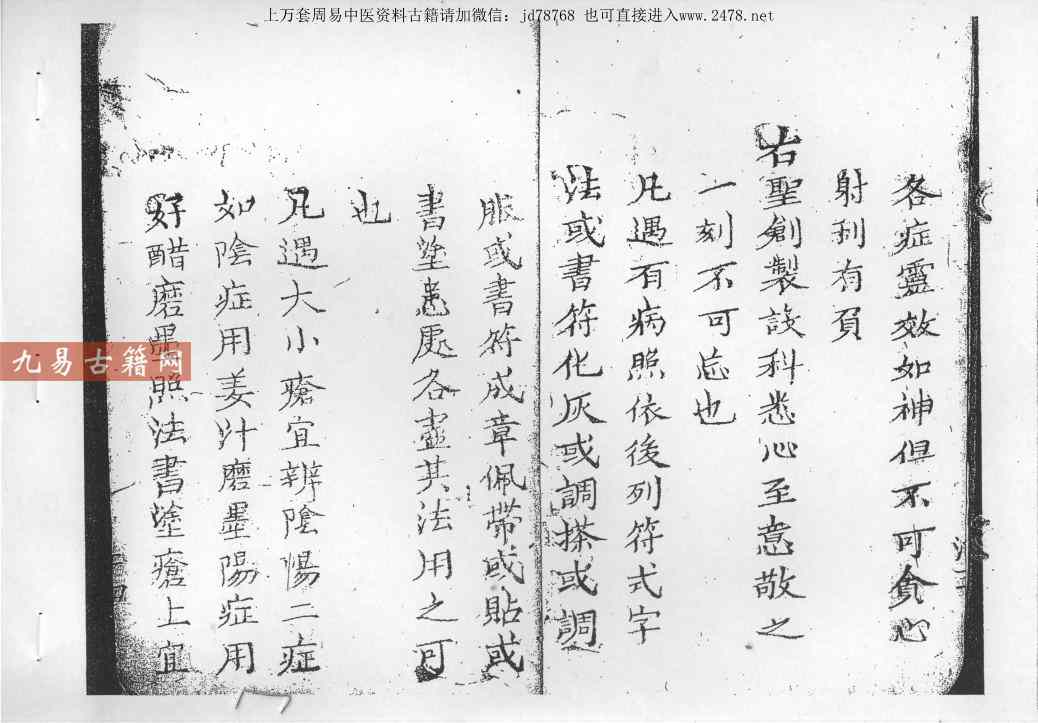 上万套周易中医资料古籍请加微信：jd78768 也可直接进入www.2478.net
各症靈效如神但不可貪心
射利有負
右聖劍製設科悉心至意敬之
一刻不可忘也
凡遇有病照依後列符式字
法或書符化灰或調搽或調
服或書符成章佩帶或貼或
書塗患處各盡其法用之可
也
凡遇大小瘡宜辨陰陽二症
如陰症用姜汁磨墨陽症用
好醋磨墨照法書塗瘡上宜
九易古籍网